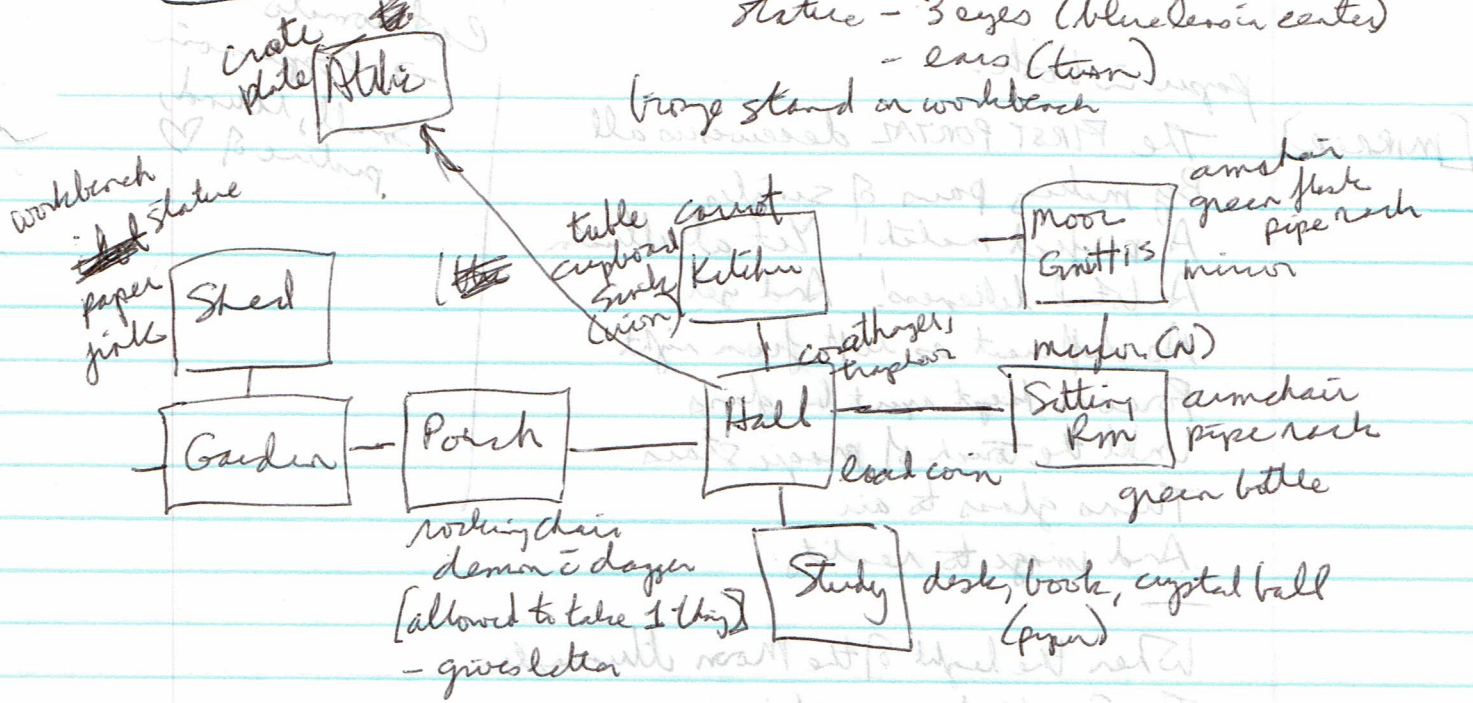 statue - 3 eyes (blue lens in center)
- ears (turn)
bronze stand on workbench
crate
plate
Attic
workbench
statue
paper
Shed
table
cupboard
sink
carrot
Kitchen
armchair
green flask
pipe rack
mirror
mooR
Gnittis
coathangers,
trapdoor
mirror (N)
Garden
Porch
Hall
Sitting
Rm
armchair
pipe rack
lead coin
green bottle
rocking chair
demon c̄ dagger
[allowed to take 1 thing]
- gives letter
Study
desk, book, crystal ball
(paper)